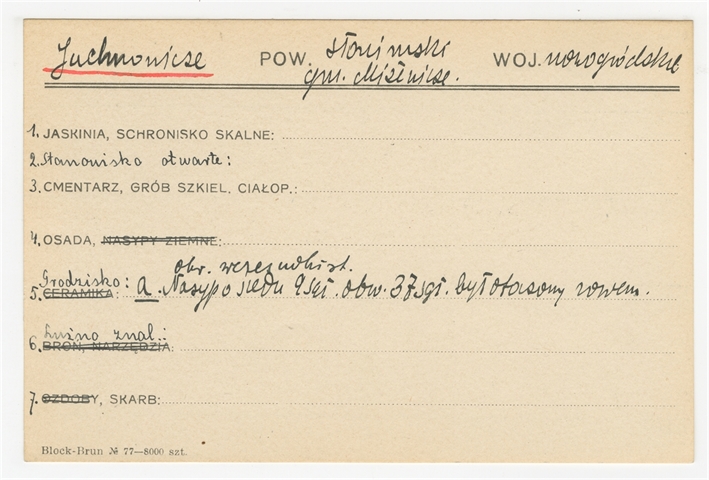 Juchnowicze POW. słonimski WOJ. nowogródzkie
gm. Mizewicze.
1. JASKINIA, SCHRONISKO SKALNE:
2. Stanowisko otwarte:
3. CMENTARZ, GRÓB SZKIEL. CIAŁOP.:
4. OSADA, NASYPY ZIEMNE:
okr. wczesnohist.
Grodzisko:
5. CERAMIKA: a. Nasyp o śred. obw. był otoczony rowem.
Luźno znal.:
6. BROŃ, NARZĘDZIA:
7. OZDOBY, SKARB:
Block-Brun № 77—8000 szt.